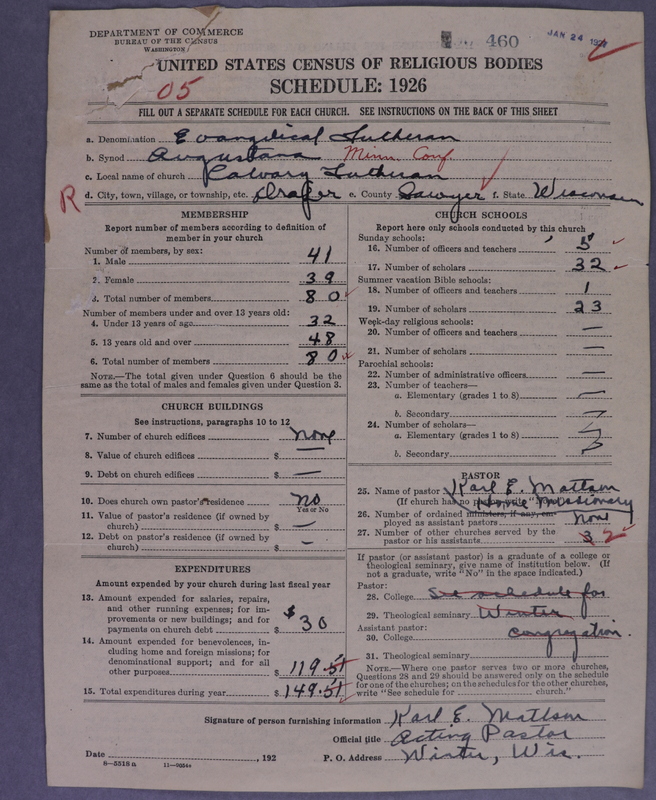 DEPARTMENT OF COMMERCE
BUREAU OF THE CENSUS
WASHINGTON
460
JAN 24 192
UNITED STATES CENSUS OF RELIGIOUS BODIES
SCHEDULE: 1926
05
FILL OUT A SEPARATE SCHEDULE FOR EACH CHURCH. SEE INSTRUCTIONS ON THE BACK OF THIS SHEET
a. Denomination Evangelical Lutheran
b. Synod Augustana Minn Conf.
c. Local name of church Calvary Lutheran
R d. City, town, village, or township, etc. Draper e. County Sawyer f. State Wisconsin
MEMBERSHIP
Report number of members according to definition of
member in your church
Number of members, by sex:
1. Male 41
2. Female 39
3. Total number of members 80
Number of members under and over 13 years old:
4. Under 13 years of age 32
5. 13 years old and over 48
6. Total number of members 80
NOTE.—The total given under Question 6 should be the
same as the total of males and females given under Question 3.
CHURCH BUILDINGS
See instructions, paragraphs 10 to 12
7. Number of church edifices none
8. Value of church edifices $ —
9. Debt on church edifices $ —
10. Does church own pastor's residence No
Yes or No
11. Value of pastor's residence (if owned by
church) $ —
12. Debt on pastor's residence (if owned by
church) $ —
EXPENDITURES
Amount expended by your church during last fiscal year
13. Amount expended for salaries, repairs,
and other running expenses; for im-
provements or new buildings; and for
payments on church debt $ $30
14. Amount expended for benevolences, in-
cluding home and foreign missions; for
denominational support; and for all
other purposes $ 119.51
15. Total expenditures during year $ 149.51
CHURCH SCHOOLS
Report here only schools conducted by this church
Sunday schools:
16. Number of officers and teachers 5
17. Number of scholars 32
Summer vacation Bible schools:
18. Number of officers and teachers 1
19. Number of scholars 23
Week-day religious schools:
20. Number of officers and teachers —
21. Number of scholars —
Parochial schools:
22. Number of administrative officers —
23. Number of teachers—
a. Elementary (grades 1 to 8) —
b. Secondary —
24. Number of scholars—
a. Elementary (grades 1 to 8)
b. Secondary
PASTOR
25. Name of pastor Karl E. Mattson
(If church has no pastor, write "None") Home Missionary
26. Number of ordained ministers, if any, em-
ployed as assistant pastors none
27. Number of other churches served by the
pastor or his assistants 3 2
If pastor (or assistant pastor) is a graduate of a college or
theological seminary, give name of institution below. (If
not a graduate, write "No" in the space indicated.)
Pastor:
28. College See schedule for
29. Theological seminary Winter
Assistant pastor:
30. College congregation.
31. Theological seminary
NOTE.—Where one pastor serves two or more churches,
Questions 28 and 29 should be answered only on the schedule
for one of the churches; on the schedules for the other churches,
write "See schedule for church."
Signature of person furnishing information Karl E. Mattson
Official title Acting Pastor
Date , 192 P. O. Address Winter, Wis.
8—5518 a 11—9054a